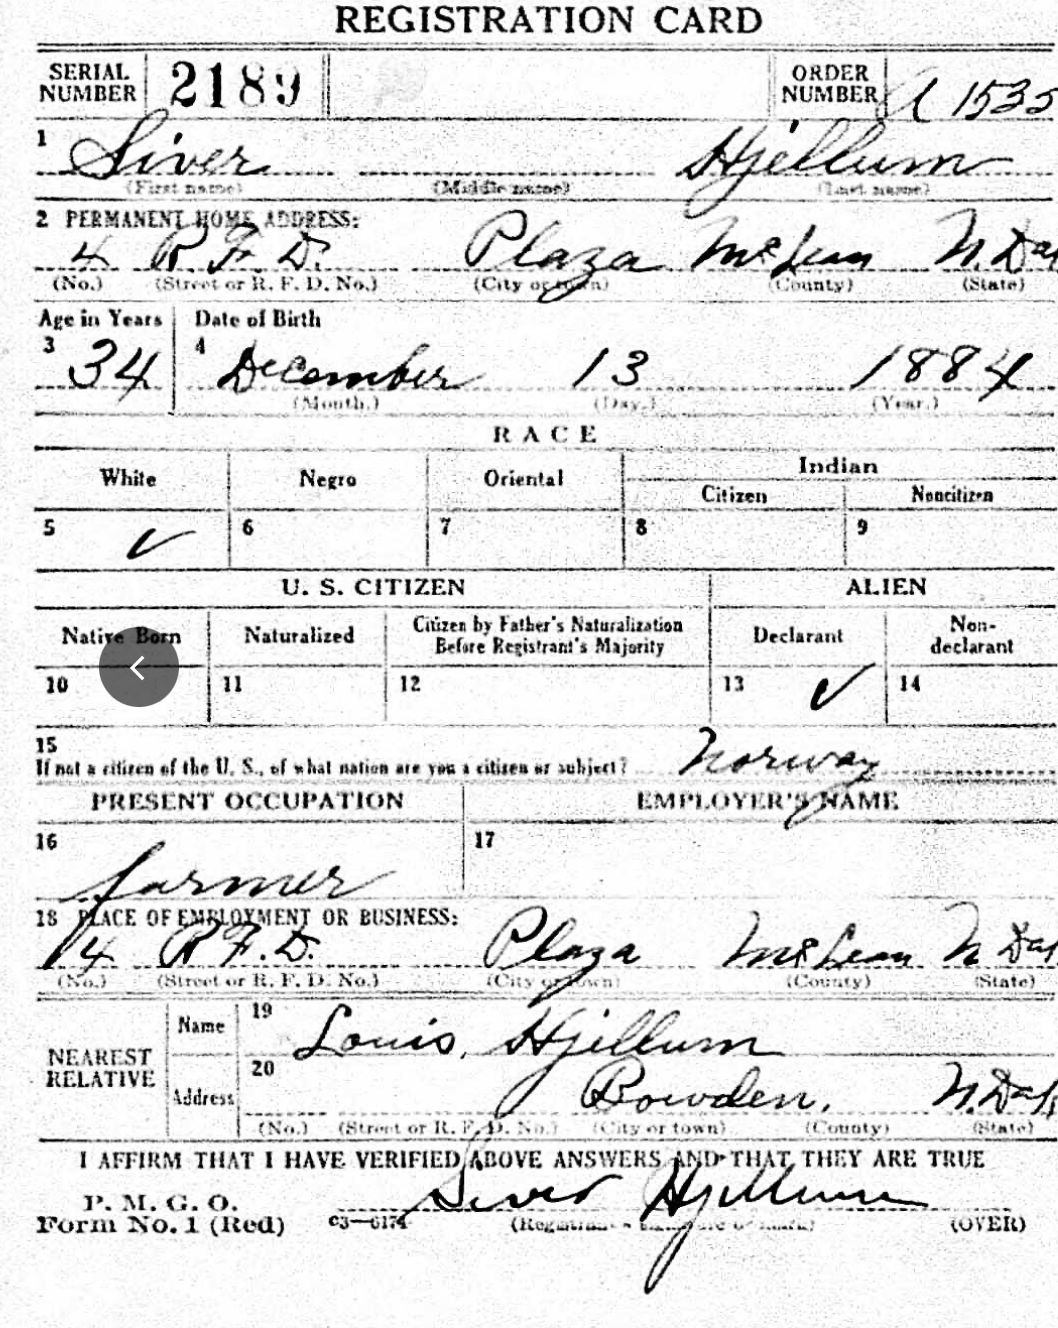 REGISTRATION CARD
SERIAL NUMBER 2189 ORDER NUMBER A 1535
1 Siver Hjellum
(First name) (Middle name) (Last name)
2 PERMANENT HOME ADDRESS:
4 R. F. D. Plaza McLean N. Dak
(No.) (Street or R. F. D. No.) (City or town) (County) (State)
Age in Years Date of Birth
3 34 4 December 13 1884
(Month.) (Day.) (Year.)
RACE
White Negro Oriental Indian
Citizen Noncitizen
5 ✓ 6 7 8 9
U. S. CITIZEN ALIEN
Native Born Naturalized Citizen by Father's Naturalization Before Registrant's Majority Declarant Non-declarant
10 11 12 13 ✓ 14
15
If not a citizen of the U. S., of what nation are you a citizen or subject? Norway
PRESENT OCCUPATION EMPLOYER'S NAME
16 farmer 17
18 PLACE OF EMPLOYMENT OR BUSINESS:
4 R. F. D. Plaza McLean N Dak
(No.) (Street or R. F. D. No.) (City or town) (County) (State)
NEAREST RELATIVE Name 19 Louis, Hjellum
Address 20 Bowden, N. Dak.
(No.) (Street or R. F. D. No.) (City or town) (County) (State)
I AFFIRM THAT I HAVE VERIFIED ABOVE ANSWERS AND THAT THEY ARE TRUE
P. M. G. O.
Form No. 1 (Red) 03—6174 Siver Hjellum
(Registrant's signature or mark) (OVER)